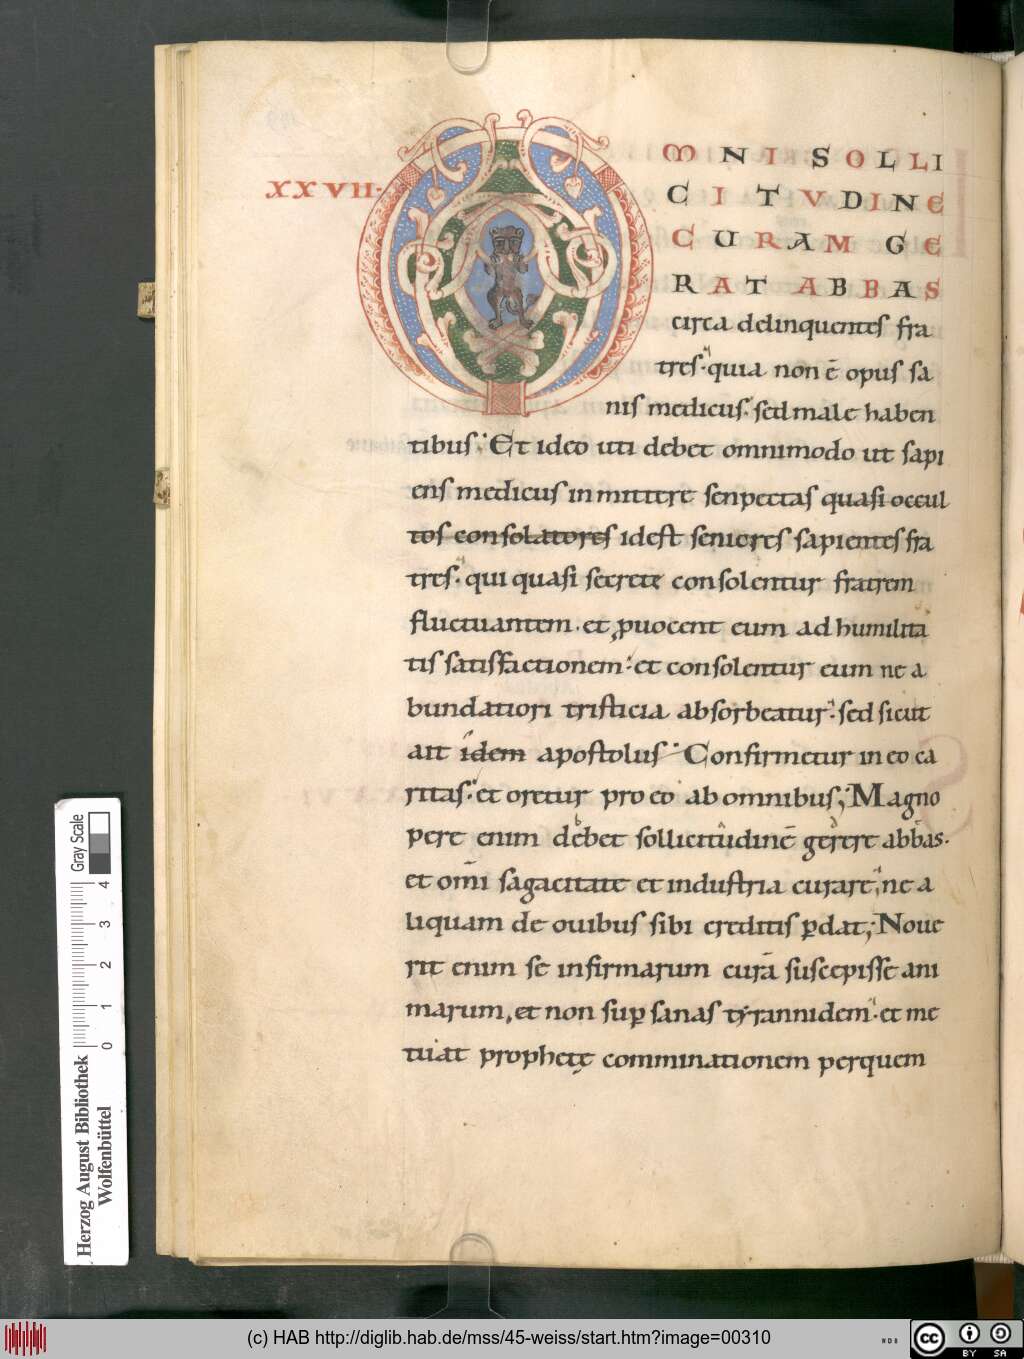 XXVII·
OMNI SOLLI
CITVDINE
CURAM GE
RAT ABBAS
circa delinquentes fra
tres· quia non ē opus sa
nis medicus· sed male haben
tibus· Et ideo uti debet omnimodo ut sapi
ens medicus inmittere senpectas quasi occul
tos consolatores idest seniores sapientes fra
tres· qui quasi secrete consolentur fratrem
fluctuantem· et ꝓuocent eum ad humilita
tis satisfactionem· et consolentur eum ne a
bundatiori tristicia absorbeatur· sed sicut
ait idem apostolus· Confirmetur in eo ca
ritas· et oretur pro eo ab omnibus; Magno
pere enim debet sollicitudinē gerere abbas·
et om̄i sagacitate et industria curare, ne a
liquam de ouibus sibi creditis ꝑdat; Noue
rit enim se infirmarum curā suscepisse ani
marum, et non suꝑ sanas tyrannidem· et me
tuat prophetę comminationem perquem
Herzog August Bibliothek
Wolfenbüttel
Gray Scale
0 1 2 3 4
(c) HAB http://diglib.hab.de/mss/45-weiss/start.htm?image=00310
cc BY SA